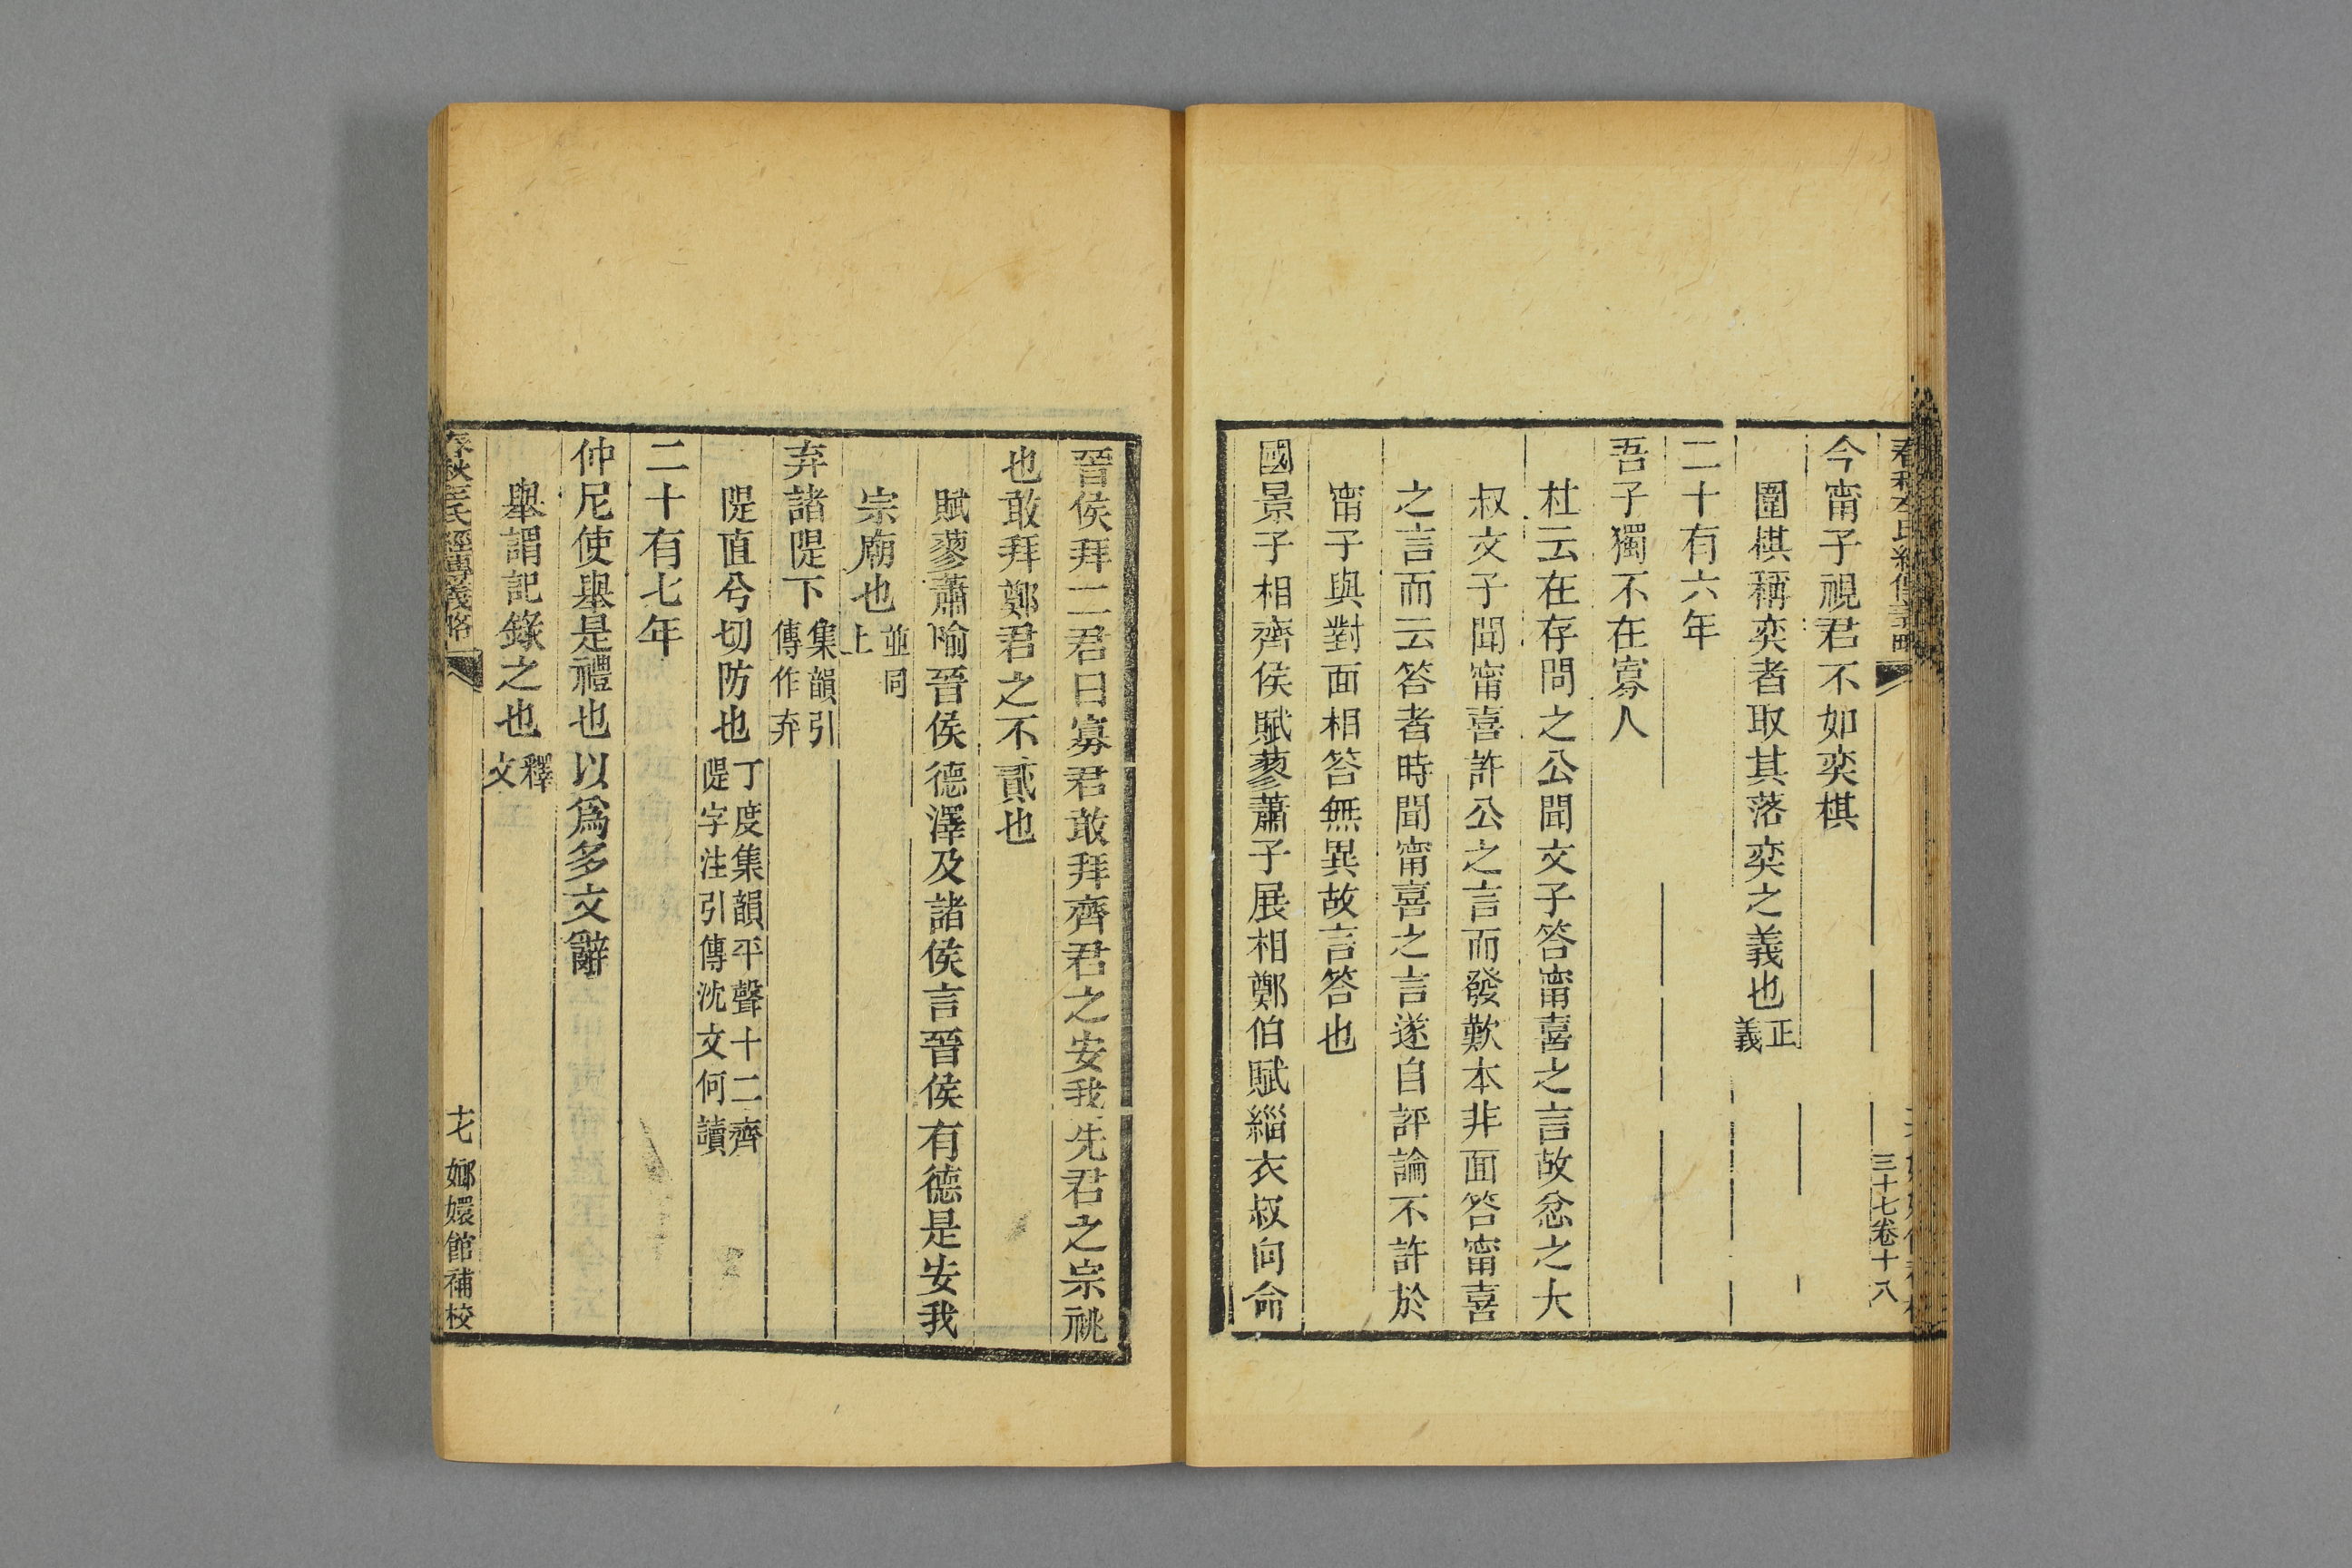 春秋左氏經傳義略
三十七卷十八
今甯子視君不如奕棋
圍棋稱奕者取其落奕之義也正義
二十有六年
吾子獨不在寡人
杜云在存問之公聞文子答甯喜之言故忿之大
叔文子聞甯喜許公之言而發歎本非面答甯喜
之言而云答者時聞甯喜之言遂自評論不許於
甯子與對面相答無異故言答也
國景子相齊侯賦蓼蕭子展相鄭伯賦緇衣叔向命
晉侯拜二君曰寡君敢拜齊君之安我先君之宗祧
也敢拜鄭君之不貳也
賦蓼蕭喻晉侯德澤及諸侯言晉侯有德是安我
宗廟也並同上
弃諸隄下集韻引傳作弃
隄直兮切防也丁度集韻平聲十二齊隄字注引傳沈文何讀
二十有七年
仲尼使舉是禮也以爲多文辭
舉謂記錄之也釋文
春秋左氏經傳義略
十七
嫏嬛館補校